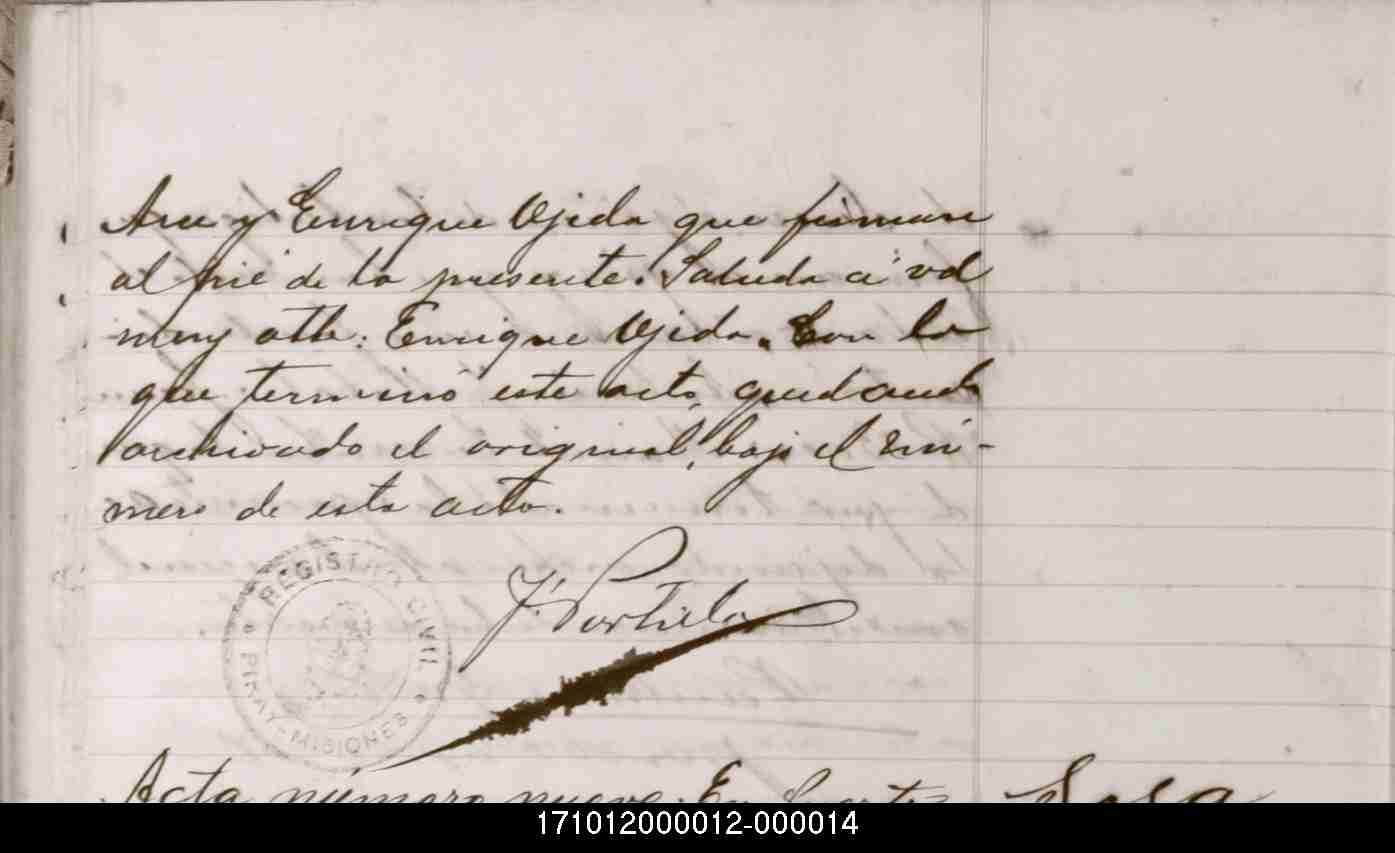 y Enrique Ojeda que firman
al pié de la presente. Saluda á vd
muy atte: Enrique Ojeda. Con lo
que terminó este acto, quedando
archivado el original, bajo el nú-
mero de esta acta.
J. Portela
REGISTRO CIVIL
PIRAY-MISIONES
Acta número nueve. En Puerto
Sosa
171012000012-000014